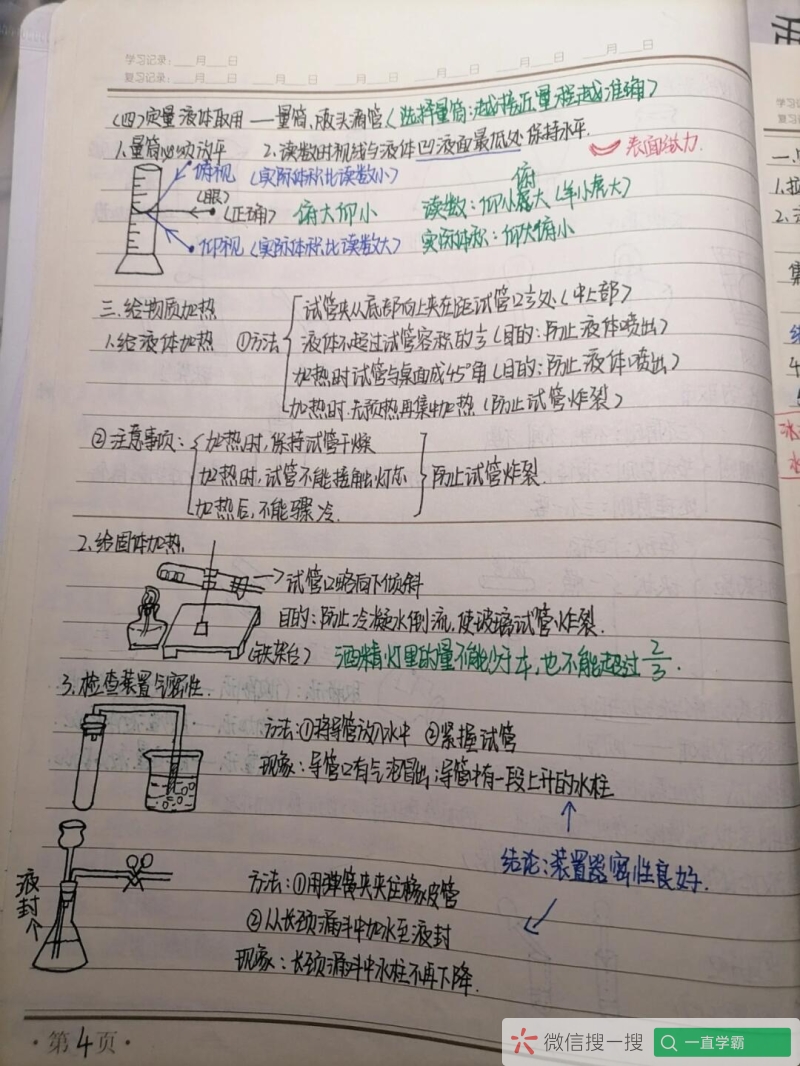 学习记录:___月___日
复习记录:___月___日 ___月___日 ___月___日 ___月___日 ___月___日 ___月___日
(四)定量液体取用 — 量筒、胶头滴管(选择量筒:越接近量程越准确)
1.量筒必须放平 2.读数时视线与液体凹液面最低处保持水平.
表面张力.
俯视 (实际体积比读数小)
(眼)
(正确) 俯大仰小
俯
读数:仰小俯大(羊小虎大)
仰视 (实际体积比读数大) 实际体积:仰大俯小
三.给物质加热
1.给液体加热 ①方法
试管夹从底部向上夹在距试管口⅓处(中上部)
液体不超过试管容积的⅓(目的:防止液体喷出)
加热时试管与桌面成45°角(目的:防止液体喷出)
加热时.先预热再集中加热(防止试管炸裂)
②注意事项:
加热时,保持试管干燥
加热时,试管不能接触灯芯
加热后,不能骤冷.
防止试管炸裂.
2.给固体加热.
试管口略向下倾斜
目的:防止冷凝水倒流,使玻璃试管炸裂.
(铁架台) 酒精灯里的量不能少于¼,也不能超过⅔.
3.检查装置气密性.
方法:①将导管放入水中 ②紧握试管
现象:导管口有气泡冒出,导管中有一段上升的水柱
结论:装置气密性良好.
液封个
方法:①用弹簧夹夹住橡皮管
②从长颈漏斗中加水至液封
现象:长颈漏斗中水柱不再下降.
·第4页·
微信搜一搜
一直学霸